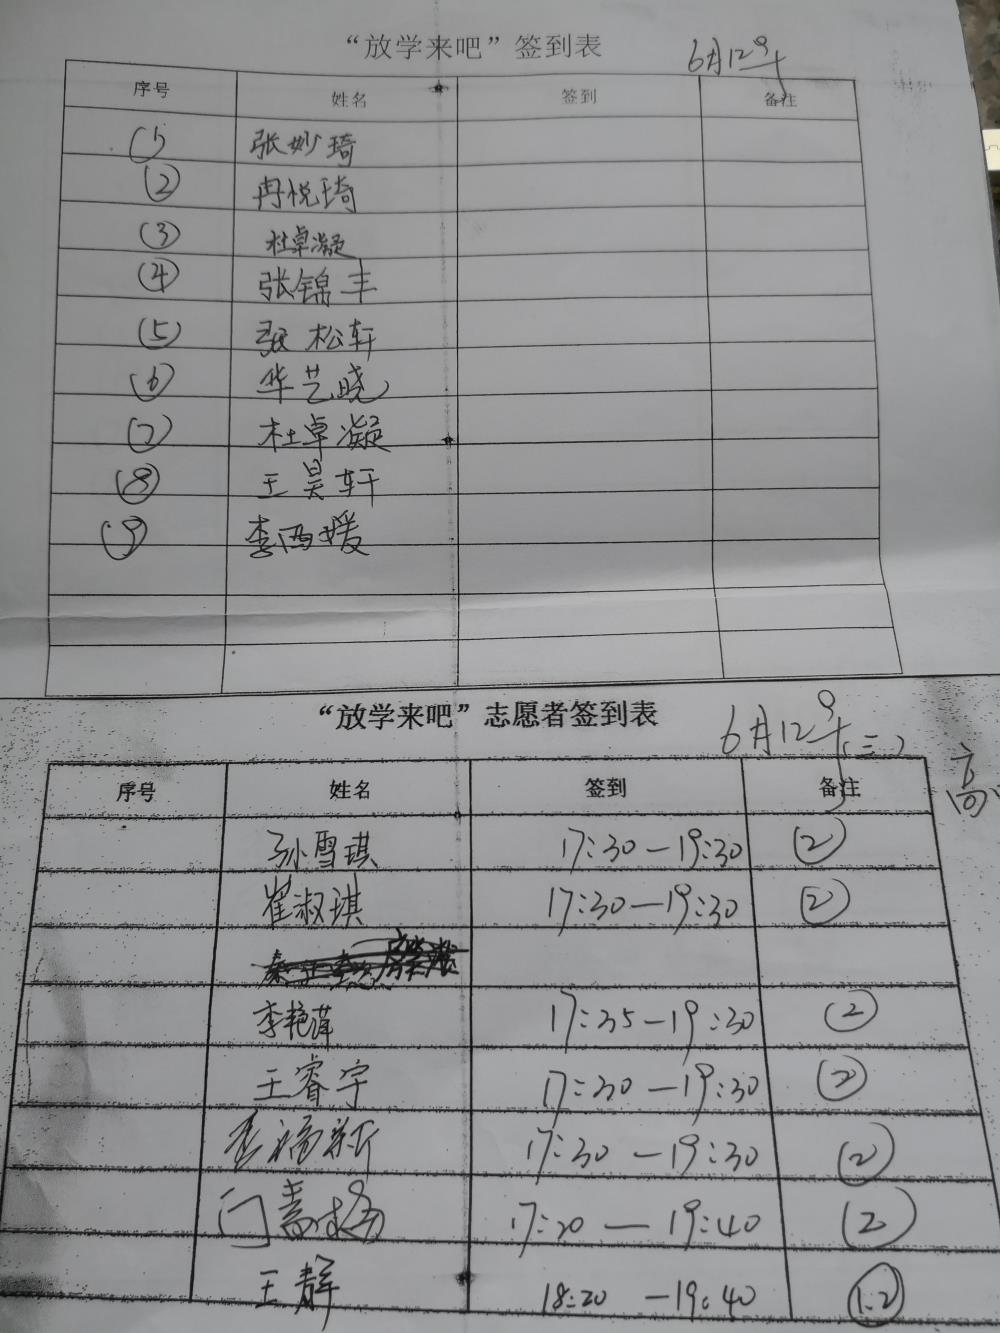 “放学来吧”签到表 6月12号
序号 姓名 签到 备注
① 张妙琦
② 冉悦琦
③ 杜卓凝
④ 张锦丰
⑤ 张松轩
⑥ 华艺晓
⑦ 杜卓凝
⑧ 王昊轩
⑨ 李西媛
“放学来吧”志愿者签到表 6月12号(三)
高
序号 姓名 签到 备注
孙雪琪 17:30—19:30 ②
崔淑琪 17:30—19:30 ②
李艳萍 17:35—19:30 ②
王睿宇 17:30—19:30 ②
17:30—19:30 ②
17:20—19:40 ②
王静 18:20—19:40